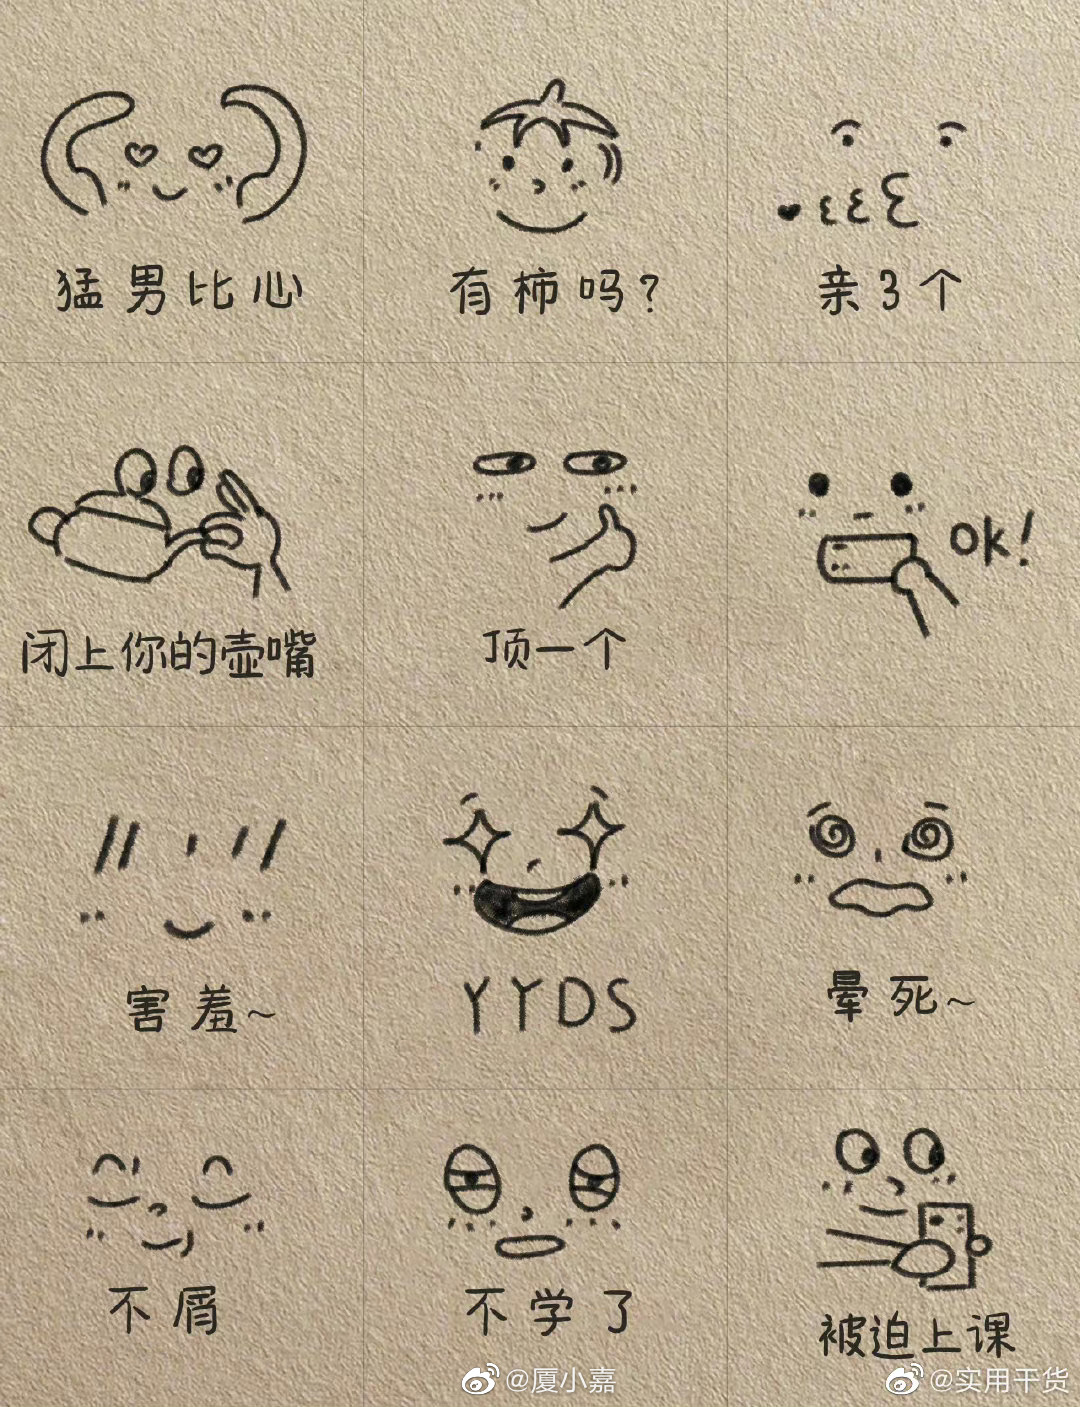 猛男比心
有柿吗?
亲3个
闭上你的壶嘴
顶一个
ok!
害羞~
YYDS
晕死~
不屑
不学了
被迫上课
@厦小嘉
@实用干货